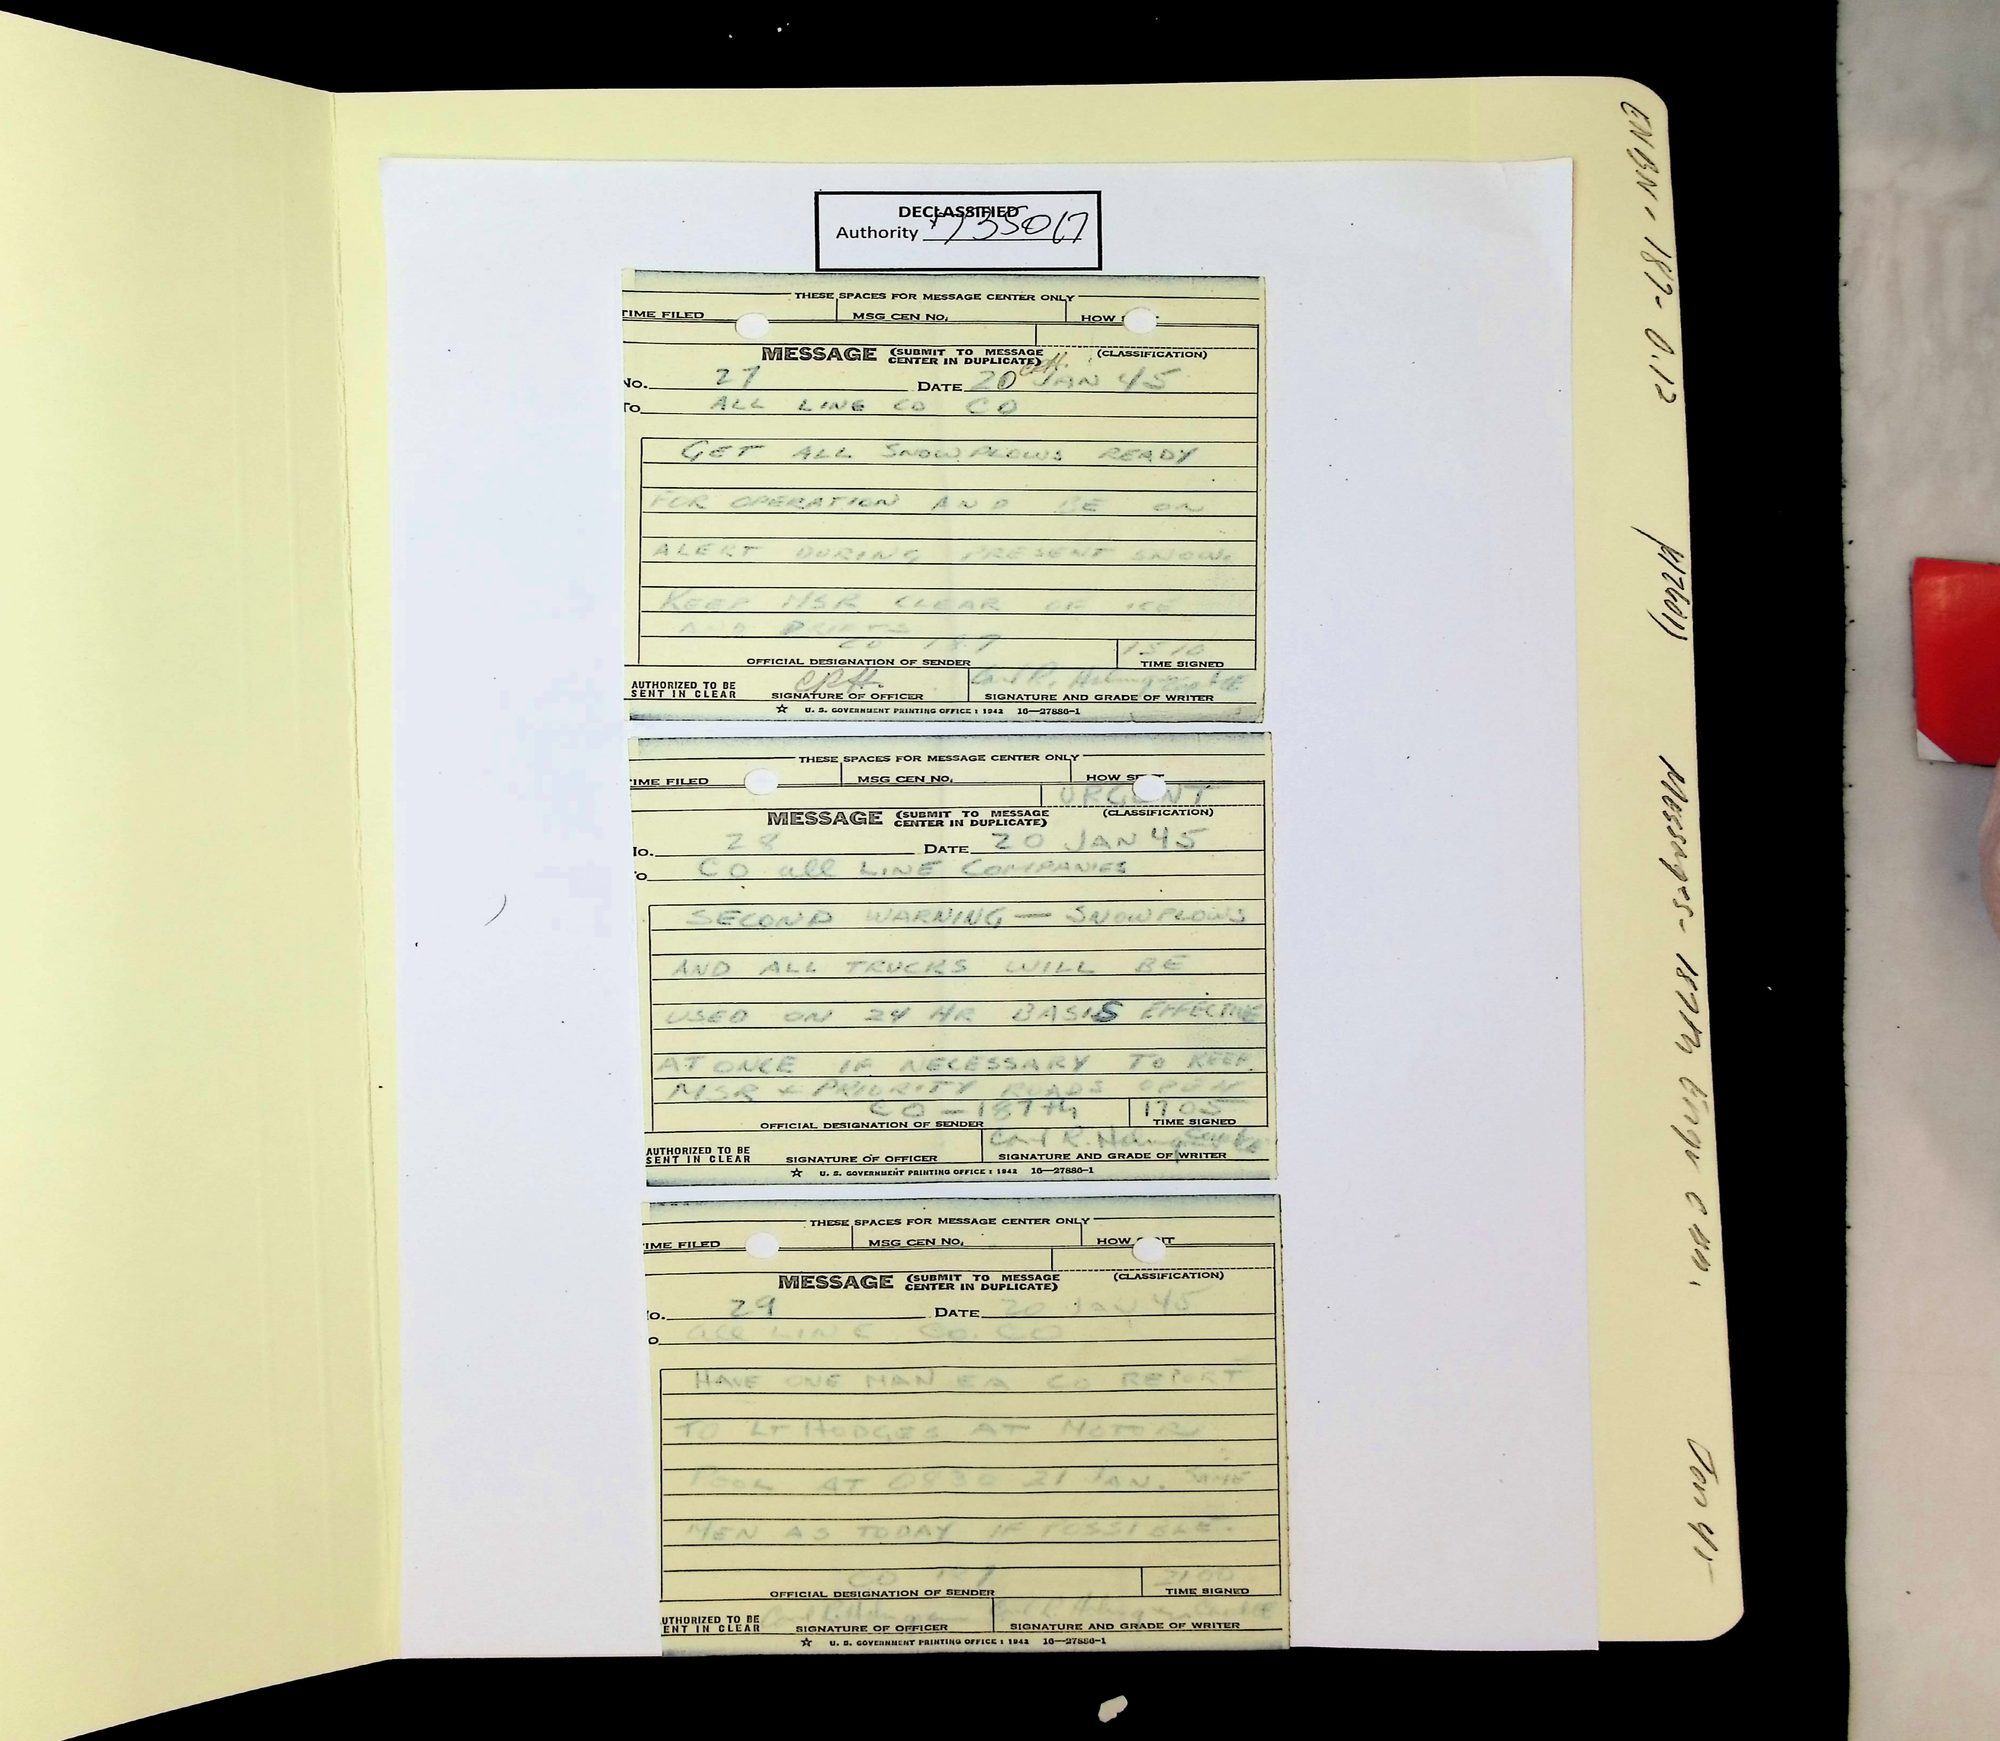 DECLASSIFIED
Authority 735017
THESE SPACES FOR MESSAGE CENTER ONLY
TIME FILED MSG CEN NO. HOW
MESSAGE (SUBMIT TO MESSAGE CENTER IN DUPLICATE) (CLASSIFICATION)
No. 27 DATE 20 JAN 45
CRH.
To ALL LINE CO CO
GET ALL SNOWPLOWS READY
FOR OPERATION AND BE ON
ALERT DURING PRESENT SNOW.
KEEP MSR CLEAR OF ICE
AND DRIFTS
CO 187 1510
OFFICIAL DESIGNATION OF SENDER TIME SIGNED
AUTHORIZED TO BE SENT IN CLEAR CRH. Carl R. Holmgren Capt CE
SIGNATURE OF OFFICER SIGNATURE AND GRADE OF WRITER
☆ U. S. GOVERNMENT PRINTING OFFICE : 1942 16—27886-1
THESE SPACES FOR MESSAGE CENTER ONLY
IME FILED MSG CEN NO. HOW SENT
URGENT
MESSAGE (SUBMIT TO MESSAGE CENTER IN DUPLICATE) (CLASSIFICATION)
No. 28 DATE 20 JAN 45
o CO all LINE COMPANIES
SECOND WARNING — SNOWPLOWS
AND ALL TRUCKS WILL BE
USED ON 24 HR BASIS EFFECTIVE
AT ONCE IF NECESSARY TO KEEP
MSR + PRIORITY ROADS OPEN
CO - 187th 1705
OFFICIAL DESIGNATION OF SENDER TIME SIGNED
AUTHORIZED TO BE SENT IN CLEAR Carl R. Holmgren Capt CE
SIGNATURE OF OFFICER SIGNATURE AND GRADE OF WRITER
☆ U. S. GOVERNMENT PRINTING OFFICE : 1942 16—27886-1
THESE SPACES FOR MESSAGE CENTER ONLY
IME FILED MSG CEN NO. HOW
MESSAGE (SUBMIT TO MESSAGE CENTER IN DUPLICATE) (CLASSIFICATION)
o. 29 DATE 20 Jan 45
o all LINE Co. CO
HAVE ONE MAN EA CO REPORT
TO LT HODGES AT MOTOR
POOL AT 0830 21 JAN. SAME
MEN AS TODAY IF POSSIBLE.
CO 187 2100
OFFICIAL DESIGNATION OF SENDER TIME SIGNED
UTHORIZED TO BE ENT IN CLEAR Carl R. Holmgren Carl R. Holmgren Capt CE
SIGNATURE OF OFFICER SIGNATURE AND GRADE OF WRITER
☆ U. S. GOVERNMENT PRINTING OFFICE : 1942 16—27886-1
ENBN-187-0.12 Messages- 187th Engr C Bn. Jan 45